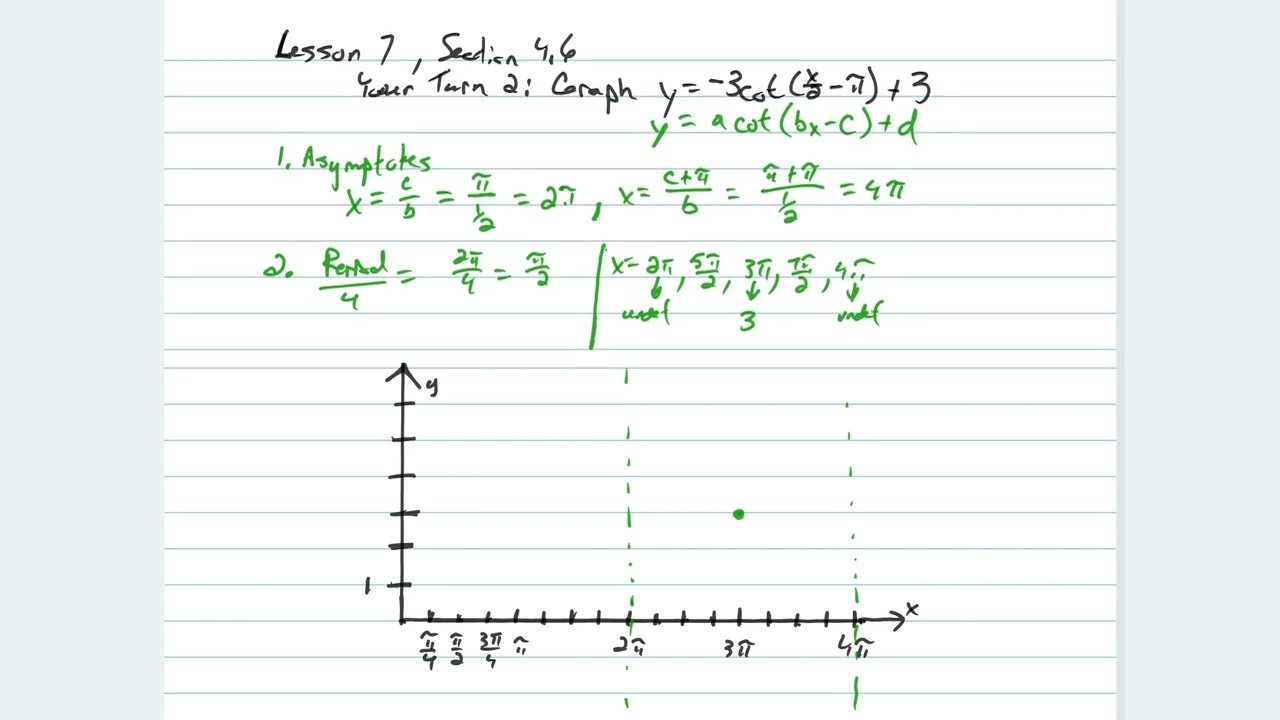 Lesson 7, Section 4.6
Your Turn 2: Graph y = -3cot(x/2 - π) + 3
y = a cot(bx - c) + d
1. Asymptotes
x = c/b = π/(1/2) = 2π, x = (c+π)/b = (π+π)/(1/2) = 4π
2. Period/4 = 2π/4 = π/2 | x = 2π, 5π/2, 3π, 7π/2, 4π
undef 3 undef
y
1
x
π/4 π/2 3π/4 π 2π 3π 4π